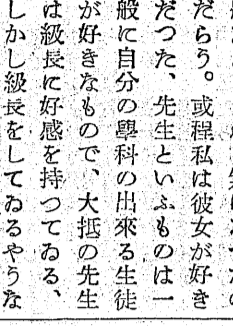 だらう。或程私は彼女が好き
だつた、先生といふものは一
般に自分の學科の出來る生徒
が好きなもので、大抵の先生
は級長に好感を持つてゐる、
しかし級長をしてゐるやうな